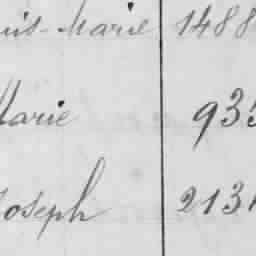 uis-Marie 1488
Marie 935
Joseph 213